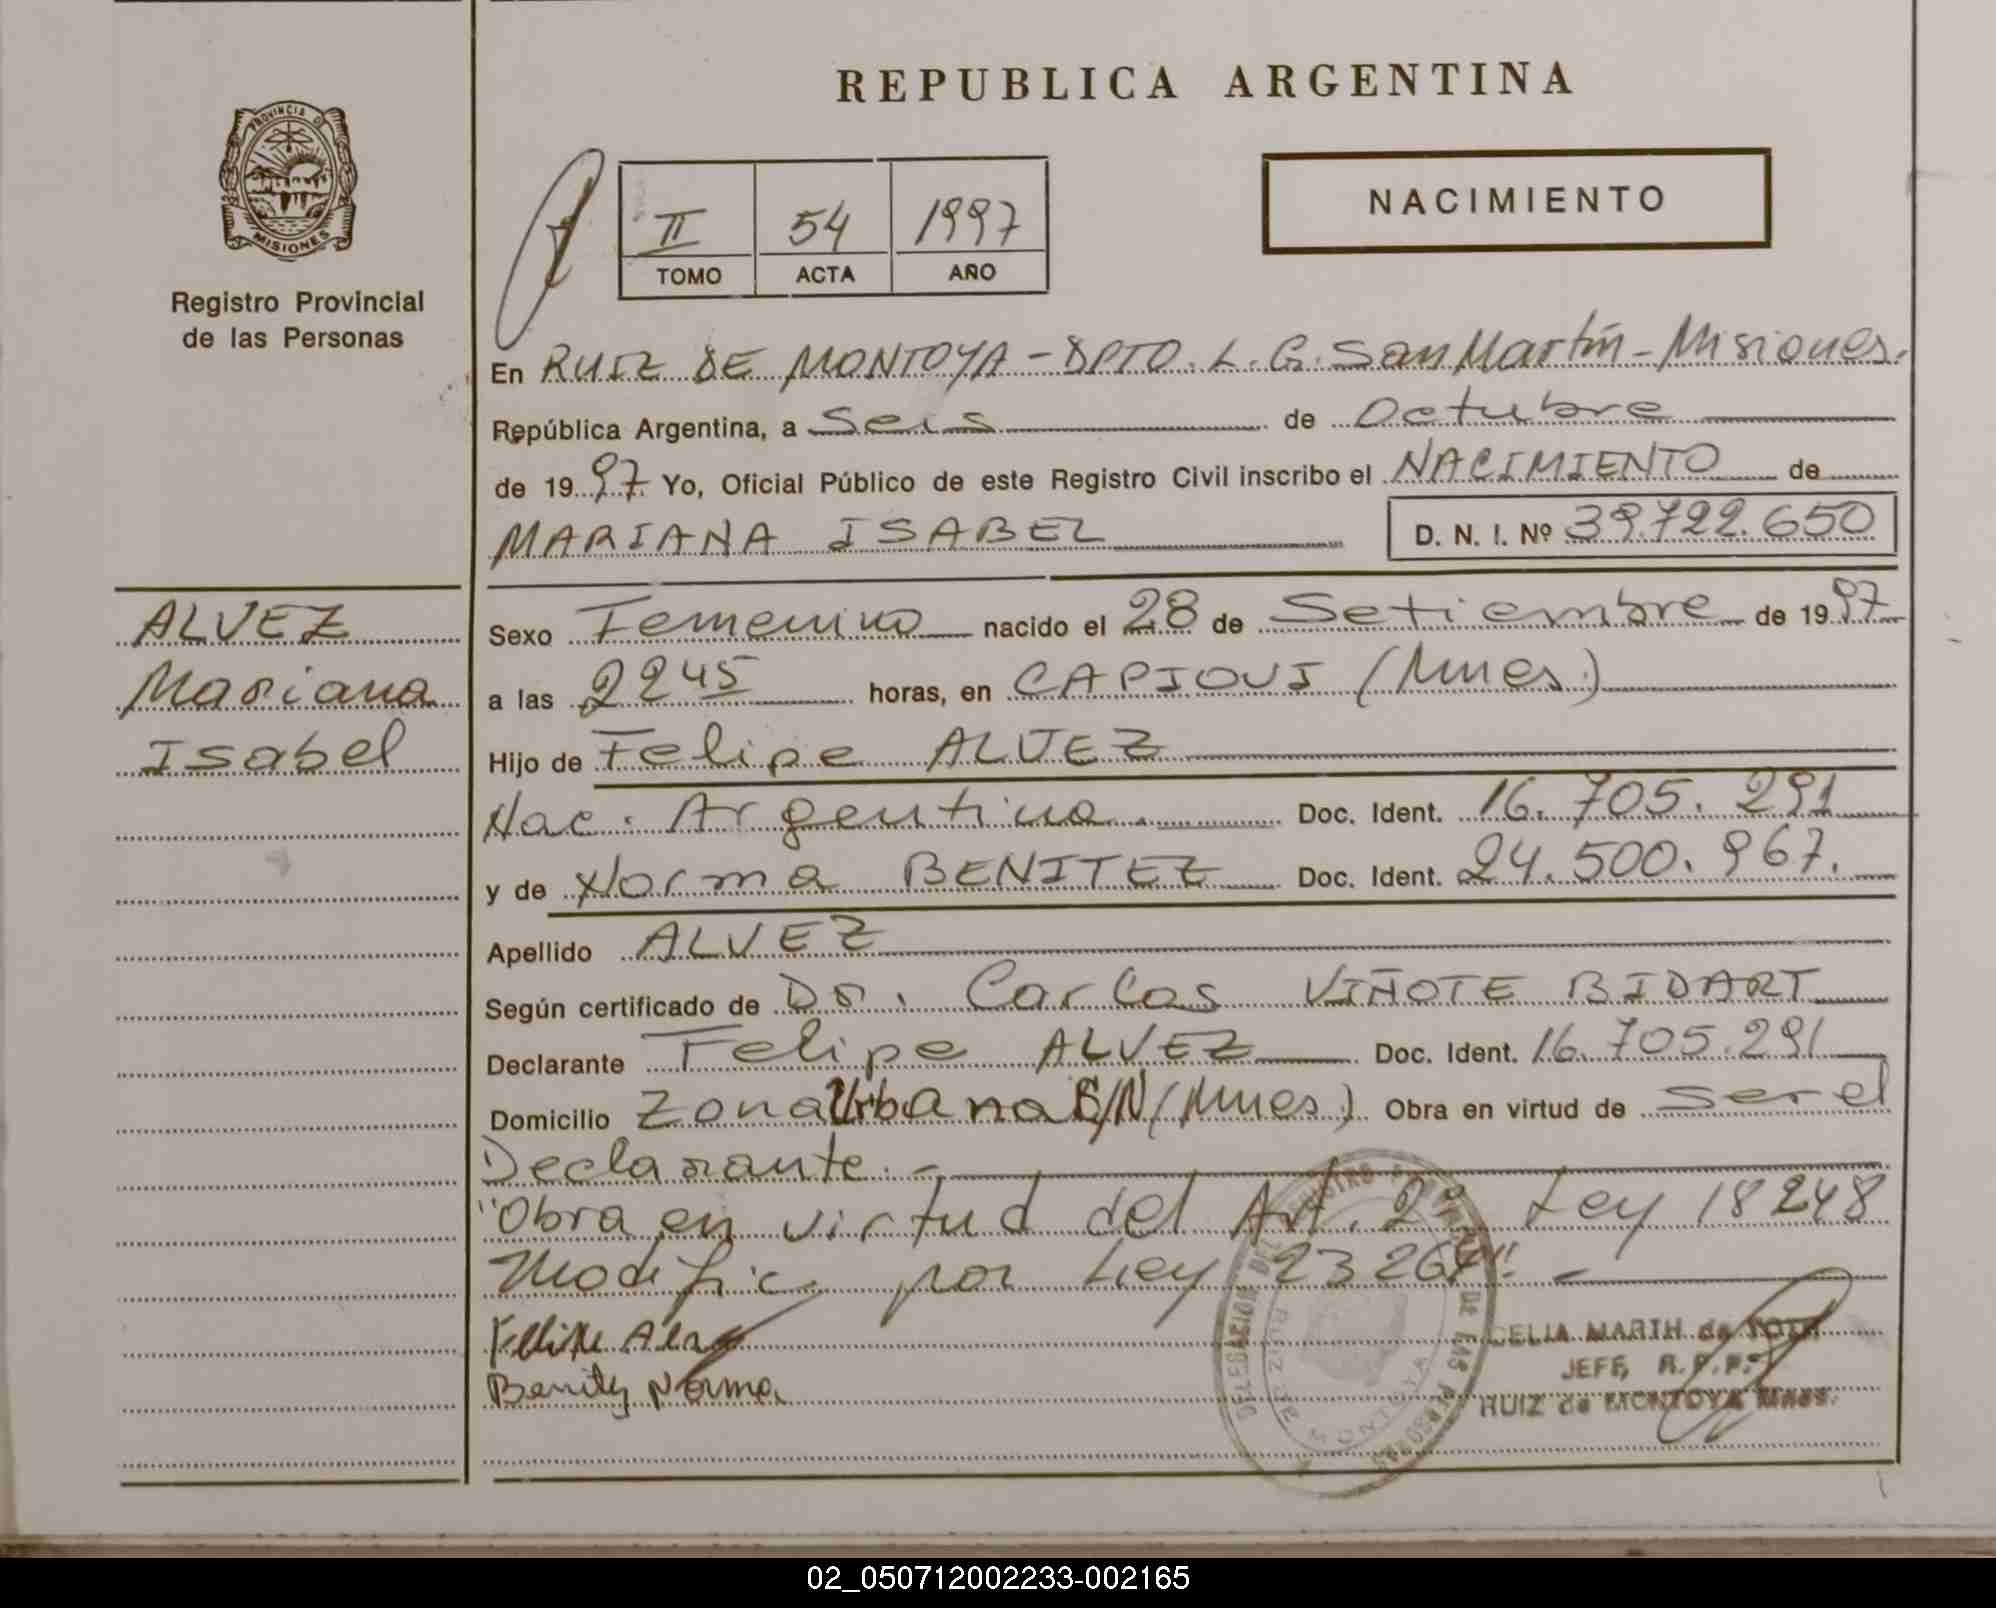 REPUBLICA ARGENTINA
PROVINCIA D
MISIONES
Registro Provincial
de las Personas
II 54 1997
TOMO ACTA AÑO
NACIMIENTO
En RUIZ DE MONTOYA - DPTO. L. G. San Martín - Misiones.
República Argentina, a Seis de Octubre
de 1997 Yo, Oficial Público de este Registro Civil inscribo el NACIMIENTO de
MARIANA ISABEL D. N. I. Nº 39.722.650
ALVEZ
Mariana
Isabel
Sexo Femenino nacido el 28 de Setiembre de 1997
a las 2245 horas, en CAPIOVI (Mnes.)
Hijo de Felipe ALVEZ
Nac. Argentina. Doc. Ident. 16.705.291
y de Norma BENITEZ Doc. Ident. 24.500.967.
Apellido ALVEZ
Según certificado de Dr. Carlos VIÑOTE BIDART
Declarante Felipe ALVEZ Doc. Ident. 16.705.291
Domicilio Zona Urbana S/N (Mnes.) Obra en virtud de ser el
Declarante.-
"Obra en virtud del Art. 2º Ley 18248
Modific por Ley 23264" -
Felipe
Benitez Norma
DELEGACION DEL REGISTRO PROVINCIAL DE LAS PERSONAS
RUIZ DE MONTOYA
CELIA MARTH de TOTH
JEFE, R. P. P.
RUIZ de MONTOYA Mnes.
02_050712002233-002165